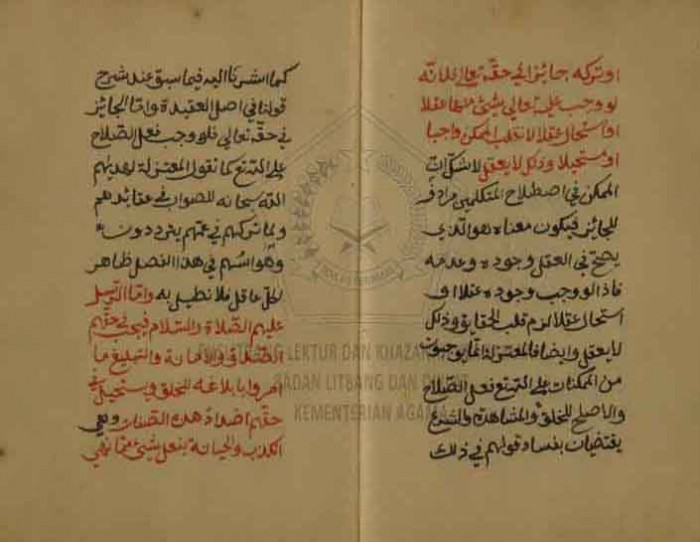 او تركه جائز في حقه تعالى اعلانه
لو وجب على تعالى شيئ منها عقلا
او استحال عقلا لا نقلب الممكن واجبا
او مستحيلا وذلك لا يعقل لا شك ان
الممكن في اصطلاح المتكلمين مرادف
للجائز فيكون معناه هو الذي
يصح في العقل وجوده وعدمه
فاذا لو وجب وجوده عقلا او
استحال عقلا لزم قلب الحقايق وذلك
لا يعقل وايضا فالمعتزلة
من الممكنات على الله تع فعل الصلاح
والاصلح للخلق والمشاهدة والشرع
يقتضيان بفساد قولهم في ذلك
كما اشرنا اليه فيما سبق عند شرح
قولنا في اصل العقيدة واما الجائز
في حقه تعالى فلو وجب فعل الصلاح
على الله تع كما تقول المعتزلة لهديهم
الله سبحانه للصواب في عقائدهم
ولما تركهم في عمهم يترددون
وهو اسهم في هذا الفصل ظاهر
لكل عاقل فلا نطيل به واما الرسل
عليهم الصلاة والسلام فيجب في حقهم
الصدق والامانة والتبليغ ما
امروا بابلاغه للخلق ويستحيل في
حقهم اضداد هذه الصفات وهي
الكذب والخيانة بفعل شيئ مما نهي
PUSLITBANG LEKTUR DAN KHAZANAH
BADAN LITBANG DAN DIKLAT
KEMENTERIAN AGAMA